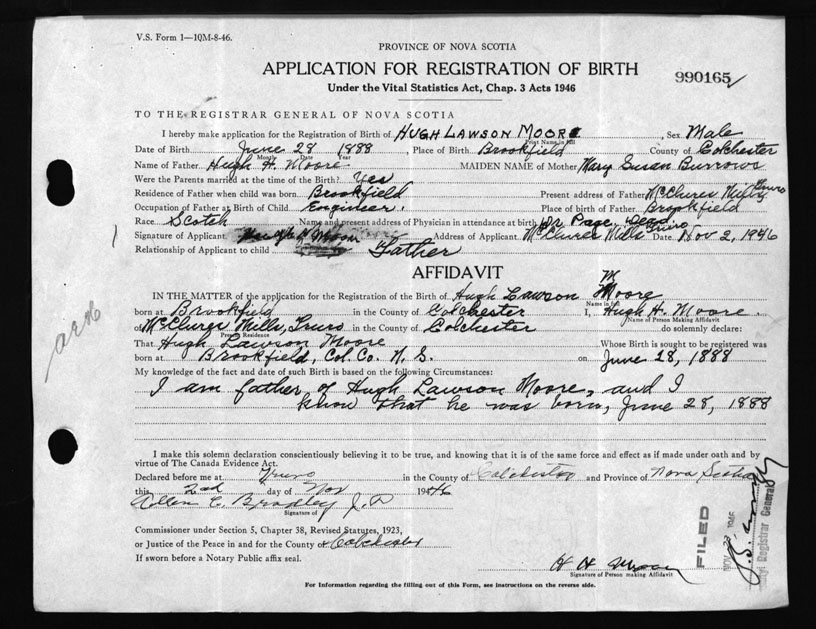 V.S. Form 1—10M-8-46.
PROVINCE OF NOVA SCOTIA
APPLICATION FOR REGISTRATION OF BIRTH
990165
Under the Vital Statistics Act, Chap. 3 Acts 1946
TO THE REGISTRAR GENERAL OF NOVA SCOTIA
I hereby make application for the Registration of Birth of HUGH LAWSON MOORE, Sex Male
Print Name in full
Date of Birth June 28 1888, Place of Birth Brookfield County of Colchester
Month Date Year
Name of Father Hugh H. Moore MAIDEN NAME of Mother Mary Susan Burrows
Were the Parents married at the time of the Birth? Yes
Residence of Father when child was born Brookfield Present address of Father McClures Mills, Truro
Occupation of Father at Birth of Child Engineer. Place of birth of Father Brookfield
Race Scotch Name and present address of Physician in attendance at birth Dr. Page, Dead.
Signature of Applicant Hugh H Moore Address of Applicant McClures Mills Truro Date Nov 2, 1946
Relationship of Applicant to child Father
AFFIDAVIT
IN THE MATTER of the application for the Registration of the Birth of Hugh Lawson Moore
Name in full
born at Brookfield in the County of Colchester I, Hugh H. Moore.
Name of Person Making Affidavit
of McClures Mills, Truro in the County of Colchester do solemnly declare:
Present Residence
That Hugh Lawson Moore Whose Birth is sought to be registered was
born at Brookfield, Col. Co. N. S. on June 28, 1888
My knowledge of the fact and date of such Birth is based on the following Circumstances:
I am father of Hugh Lawson Moore, and I
know that he was born, June 28, 1888
I make this solemn declaration conscientiously believing it to be true, and knowing that it is of the same force and effect as if made under oath and by
virtue of The Canada Evidence Act.
Declared before me at Truro in the County of Colchester and Province of Nova Scotia
this 2nd day of Nov 1946
Allen C. Bradley J.P
Signature of
Commissioner under Section 5, Chapter 38, Revised Statutes, 1923,
or Justice of the Peace in and for the County of Colchester
If sworn before a Notary Public affix seal.
H H Moore
Signature of Person making Affidavit
For Information regarding the filling out of this Form, see instructions on the reverse side.
FILED
NOV 23 1946
Registrar General